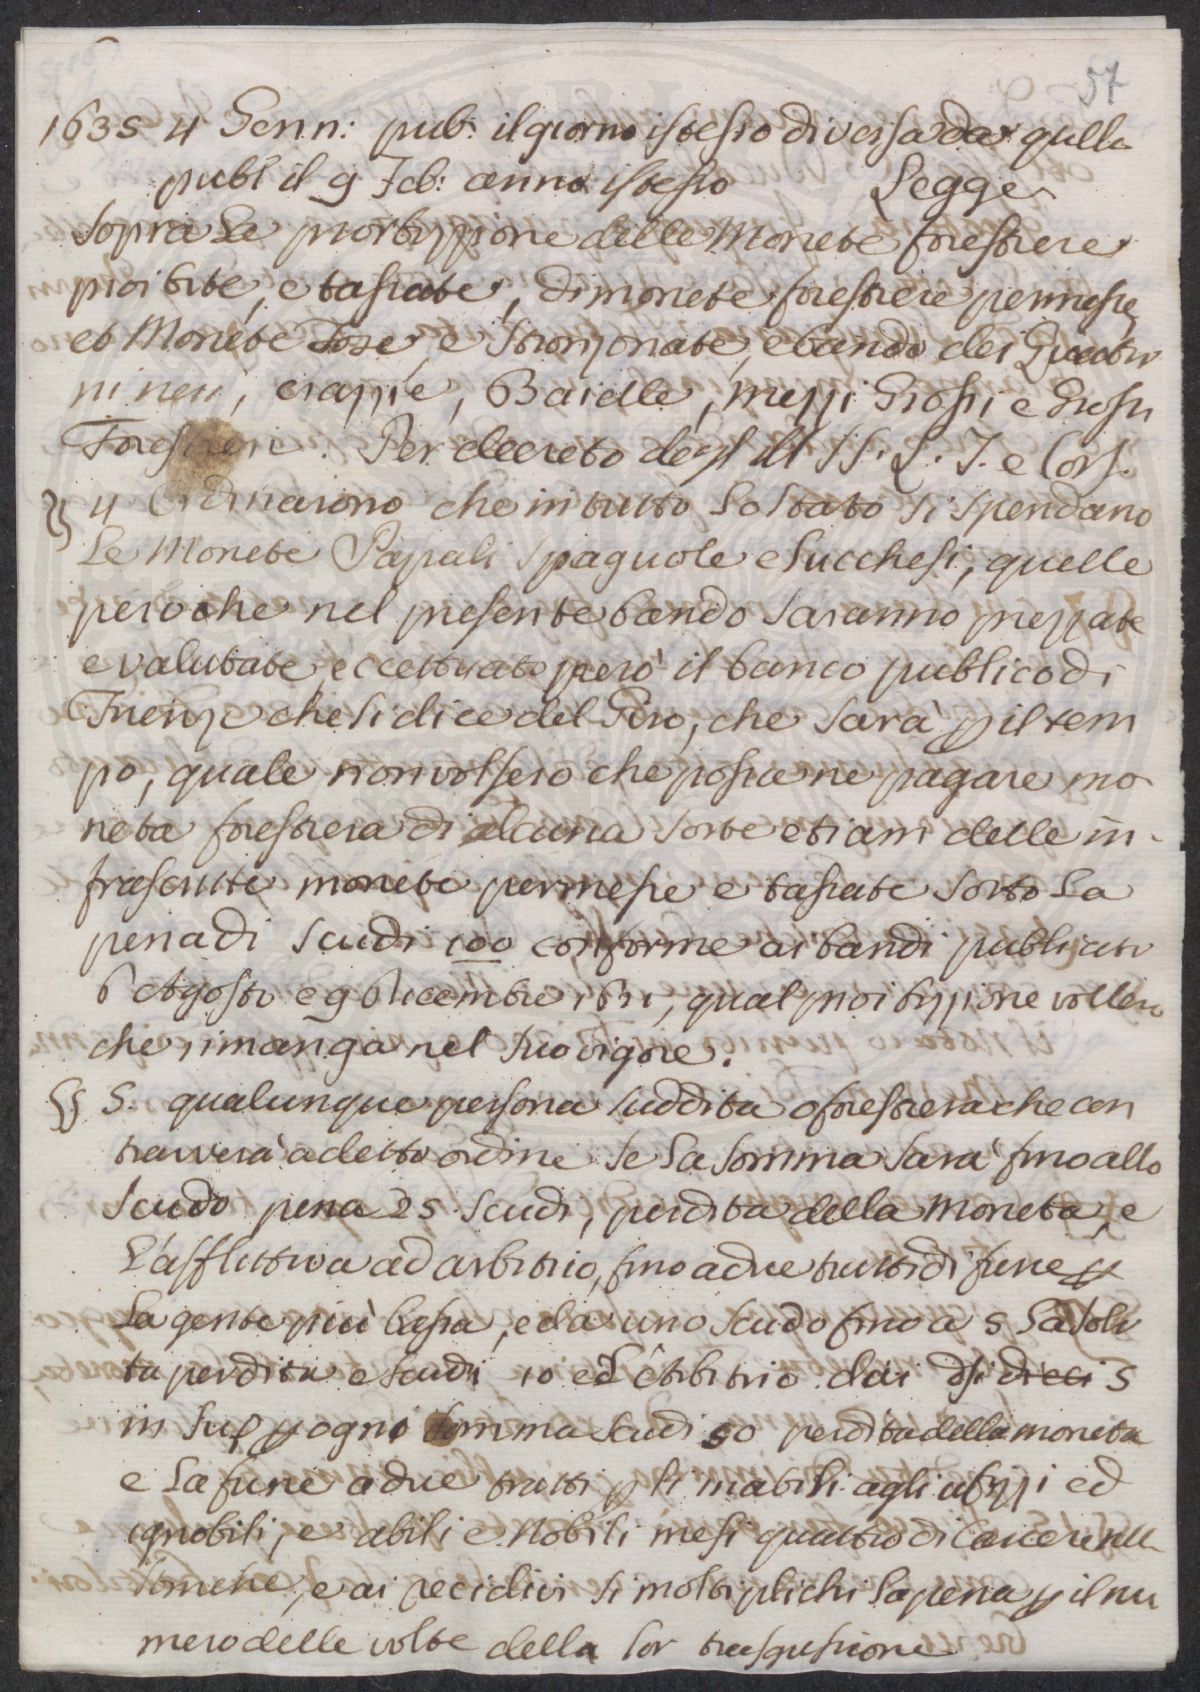 57
1635 4 Genn: pub: il giorno istesso diversa da quella
pub: il 9 Feb: anno istesso Legge
Sopra Le proibizzione delle Monete forestiere
proibite, e tassate, di monete forestiere permesse,
et Monete Tose e Stronzonate, e bando dei Quattri
ni neri, crazzie, Baielle, mezzi Grossi e Grossi
Forestieri. Per decreto degl' Ill SS. L. T. e Cons.
4 Ordinarono che in tutto Lo Stato si spendano
Le Monete Papali Spagnole e Lucchesi, quelle
pero che nel presente bando saranno prezzate
e valutate eccettuato però il banco publico di
Firenze che si dice del Giro, che sarà p il tem
po, quale non volsero che possane pagare mo
neta forestiera di alcuna sorte etiam delle in-
frascritte monete permesse e tassate sotto La
pena di scudi 100 conforme ai bandi publicati
6 Agosto e 9 Dicembre 1621, qual proibizzione vollero
che rimanga nel suo vigore.
5. qualunque persona suddita o forestiera che con
travverà a detto ordine se La Somma sarà fino allo
scudo pena 25 scudi, perdita della Moneta, e
L'afflittiva ad arbitrio, fino a due tratti di fune p
La gente più bassa, e da uno scudo fino a 5 La soli
ta perdita e scudi 10 ed Arbitrio. dai dieci 5
in su p ogni somma scudi 50 perdita della moneta
e La fune a due tratti p li inabili agli ufizzi ed
ignobili, e abili e Nobili mesi quattro di Carcere nelle
, e ai recidivi si moltiplichi La pena p il nu
mero delle volte della lor trasgressione